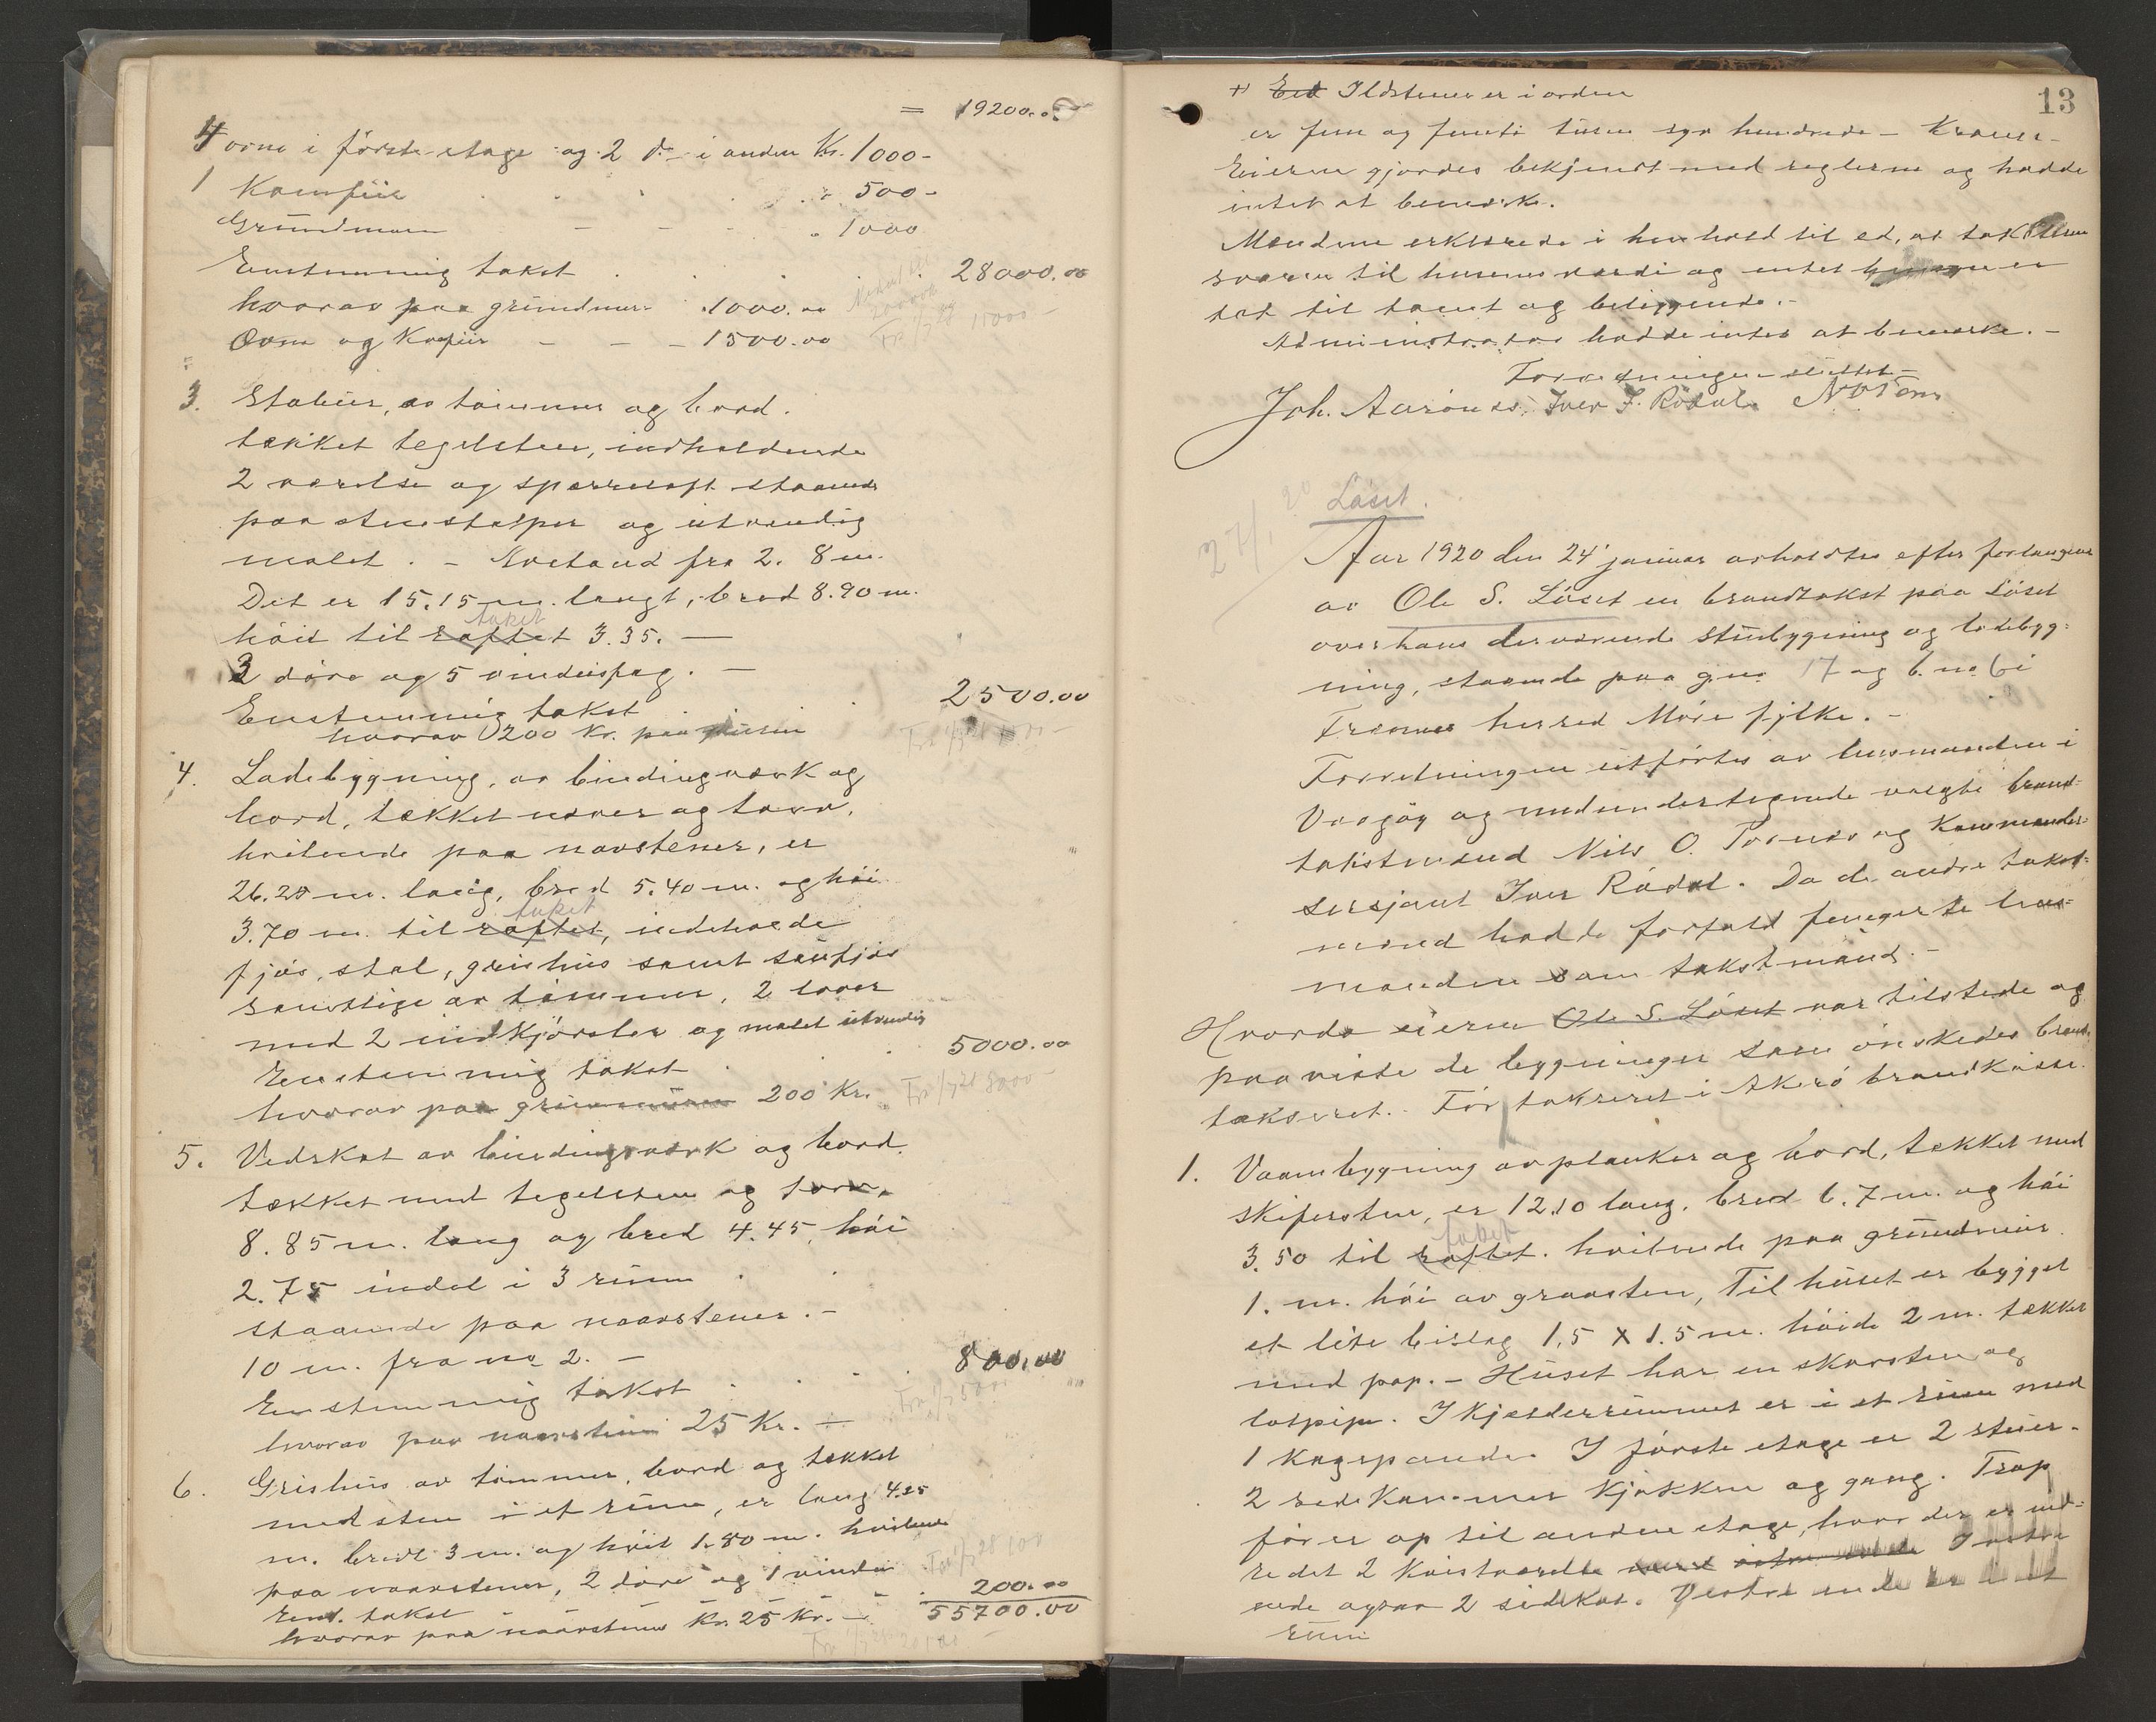 = 19200.00
4 ovne i første etage og 2 do i anden Kr. 1000-
1 Komfür . . . . " 500-
Gründmurn - - - " 1000
Enstemmig takst . . . . 28000.00
hvorav paa gründmur 1000.00
Ovne og Komfür - - - 1500.00
3. Stabür, av tømmer og bord.
tækket tegelsteen, indholdende
2 værelse og sperreloft staaende
paa steenstolper og utvendig
malet. - Avstand fra 2. 8 m.
Det er 15.15 m. langt, bred 8.90 m.
høit til raftet taket 3.35. -
3 døre og 5 vinduisfag. -
Enstemmig takst . . . 2500.00
hvorav 200 Kr. paa
4. Ladebygning, av bindingværk og
bord, tækket næver og torv,
hvilende paa naostener, er
26.20 m. lang, bred 5.40 m. og høi
3.70 m. til raftet taket, indeholde
fjøs, stal, grishüs samt saufjøs
samtlige av tømmer, 2 lover
med 2 indkjørsler og malet utvendig
Enstemmig takst . . 5000.00
hvorav paa gründmüren 200 Kr.
5. Vedskot av bindingsværk og bord,
tækket med tegelsten og torv,
8.85 m. lang og bred 4.45, høi
2.75 indel i 3 rüm
staaende paa naostener. -
10 m. fra no 2. -
Enstemmig takst . . . 800.00
hvorav paa naostein 25 Kr. -
6. Grishüs av tømmer, bord og tækket
med sten i et rüm, er lang 4.25
m. bredt 3 m. og høit 1.80 m. hvilende
paa naostener, 2 døre og 1 vindu
Enst. takst . 200.00
hvorav paa naostene Kr. 25 Kr. - 55700.00
13
+) End Ildstener er i orden
er fem og femti tusen syv hundrede - Kroner -
Eieren gjordes bekjendt med reglerne og hadde
intet at bemerke.
Mændene erklærede i henhold til ed, at taksterne
svarer til husenes værdi og intet hensyn er
tat til tomt og beliggende. -
Administrator hadde intet at bemerke. -
Forretningen sluttet -
Joh. Aarønes, Iver J. Rødal.
24/1 20
Løset.
Aar 1920 den 24' januar avholdtes efter forlangende
av Ole S. Løset en brandtakst paa Løset
over hans derværende stuebygning og ladebyg-
ning, staaende paa g.no 17 og b.no 6 i
Frænes herred Møre fylke. -
Forretningen utførtes av lensmanden i
Vaagøy og medundertegnede valgte brand-
takstmænd Nils O. Tornes og Kommander-
sersjant Iver Rødal. Da de andre takst-
mænd hadde forfald fungerte lens-
manden som takstmand. -
Hvorda eieren Ole S. Løset var tilstede og
paaviste de bygninger som ønskedes brand-
takseret. - Før takseret i Akerø brandkasse.
1. Vaanbygning av planker og bord, tækket med
skifersten, er 12.10 lang, bred 6.7 m. og høi
3.50 til raftet taket. hvilende paa gründmür
1. m. høi av graasten, Til hüset er bygget
et lite bislag 1,5 x 1.5 m. høide 2 m. tækket
med pap. - Hüset har en skorsten og
løspipe. I kjælderrümmet er i et rüm med
1 Kogepande. I første etage er 2 stüer -
2 sedekammer kjøkken og gang. Trap
fører op til anden etage, hvor der er ind-
redet 2 Kvistværelse I østre
ende ogsaa 2 sideskot. Vestre ende er i et
rüm